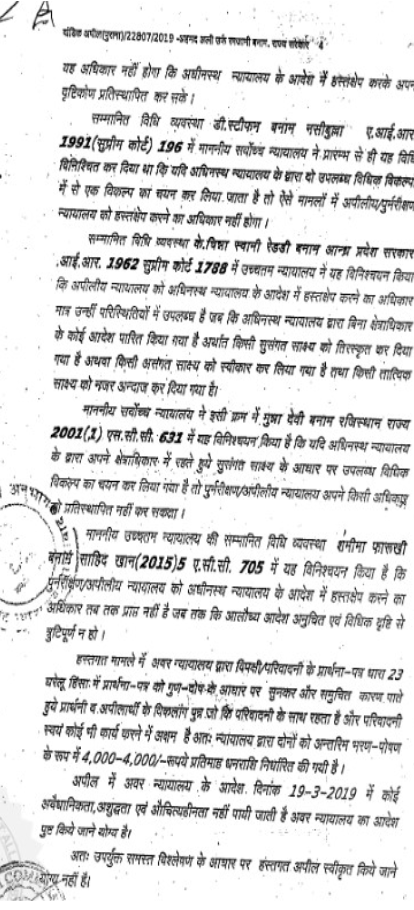 दांडिक अपील(पुराना)/22807/2019 -अहमद अली उर्फ बनाम. राज्य सरकार 4
यह अधिकार नहीं होगा कि अधीनस्थ न्यायालय के आदेश में हस्तक्षेप करके अपन
दृष्टिकोण प्रतिस्थापित कर सके।
सम्मानित विधि व्यवस्था डी.स्टीफन बनाम नसीबुल्ला ए.आई.आर
1991(सुप्रीम कोर्ट) 196 में माननीय सर्वोच्च न्यायालय ने प्रारम्भ से ही यह विधि
विनिश्चित कर दिया था कि यदि अधिनस्थ न्यायालय के द्वारा दो उपलब्ध विधिक विकल्प
में से एक विकल्प का चयन कर लिया जाता है तो ऐसे मामलों में अपीलीय/पुर्नरीक्षण
न्यायालय को हस्तक्षेप करने का अधिकार नहीं होगा।
सम्मानित विधि व्यवस्था के.चिन्ना स्वामी रेडडी बनाम आन्ध्र प्रदेश सरकार
.आई.आर. 1962 सुप्रीम कोर्ट 1788 में उच्चतम न्यायालय ने यह विनिश्चयन किया
कि अपीलीय न्यायालय को अधिनस्थ न्यायालय के आदेश में हस्तक्षेप करने का अधिकार
मात्र उन्हीं परिस्थितियों में उपलब्ध है जब कि अधिनस्थ न्यायालय द्वारा बिना क्षेत्राधिकार
के कोई आदेश पारित किया गया है अर्थात किसी सुसंगत साक्ष्य को तिरस्कृत कर दिया
गया है अथवा किसी असंगत साक्ष्य को स्वीकार कर लिया गया है तथा किसी तात्विक
साक्ष्य को नजर अन्दाज कर दिया गया है।
माननीय सर्वोच्च न्यायालय ने इसी क्रम में मुन्ना देवी बनाम राजिस्थान राज्य
2001(1) एस.सी.सी. 631 में यह विनिश्चयन किया है कि यदि अधिनस्थ न्यायालय
के द्वारा अपने क्षेत्राधिकार में रहते हुये सुसंगत साक्ष्य के आधार पर उपलब्ध विधिक
विकल्प का चयन कर लिया गया है तो पुर्नरीक्षण/अपीलीय न्यायालय अपने किसी अधिकार
को प्रतिस्थापित नहीं कर सकता।
माननीय उच्चतम न्यायालय की सम्मानित विधि व्यवस्था शमीना फारूखी
बनाम साहिद खान(2015)5 ए.सी.सी. 705 में यह विनिश्चयन किया है कि
पुर्नरीक्षण/अपीलीय न्यायालय को अधीनस्थ न्यायालय के आदेश में हस्तक्षेप करने का
अधिकार तब तक प्राप्त नहीं है जब तक कि आलौच्य आदेश अनुचित एवं विधिक दृष्टि से
त्रुटिपूर्ण न हो।
हस्तगत मामले में अवर न्यायालय द्वारा विपक्षी/परिवादनी के प्रार्थना-पत्र धारा 23
घरेलू हिंसा में प्रार्थना-पत्र को गुण-दोष के आधार पर सुनकर और समुचित कारण पाते
हुये प्रार्थनी व अपीलार्थी के विकलांग पुत्र जो कि परिवादनी के साथ रहता है और परिवादनी
स्वयं कोई भी कार्य करने में अक्षम है अतः न्यायालय द्वारा दोनों को अन्तरिम भरण-पोषण
के रूप में 4,000-4,000/-रूपये प्रतिमाह धनराशि निर्धारित की गयी है।
अपील में अवर न्यायालय के आदेश दिनांक 19-3-2019 में कोई
अवैधानिकता,अशुद्धता एवं औचित्यहीनता नहीं पायी जाती है अवर न्यायालय का आदेश
पुष्ट किये जाने योग्य है।
अतः उपर्युक्त समस्त विश्लेषण के आधार पर हस्तगत अपील स्वीकृत किये जाने
योग्य नहीं है।